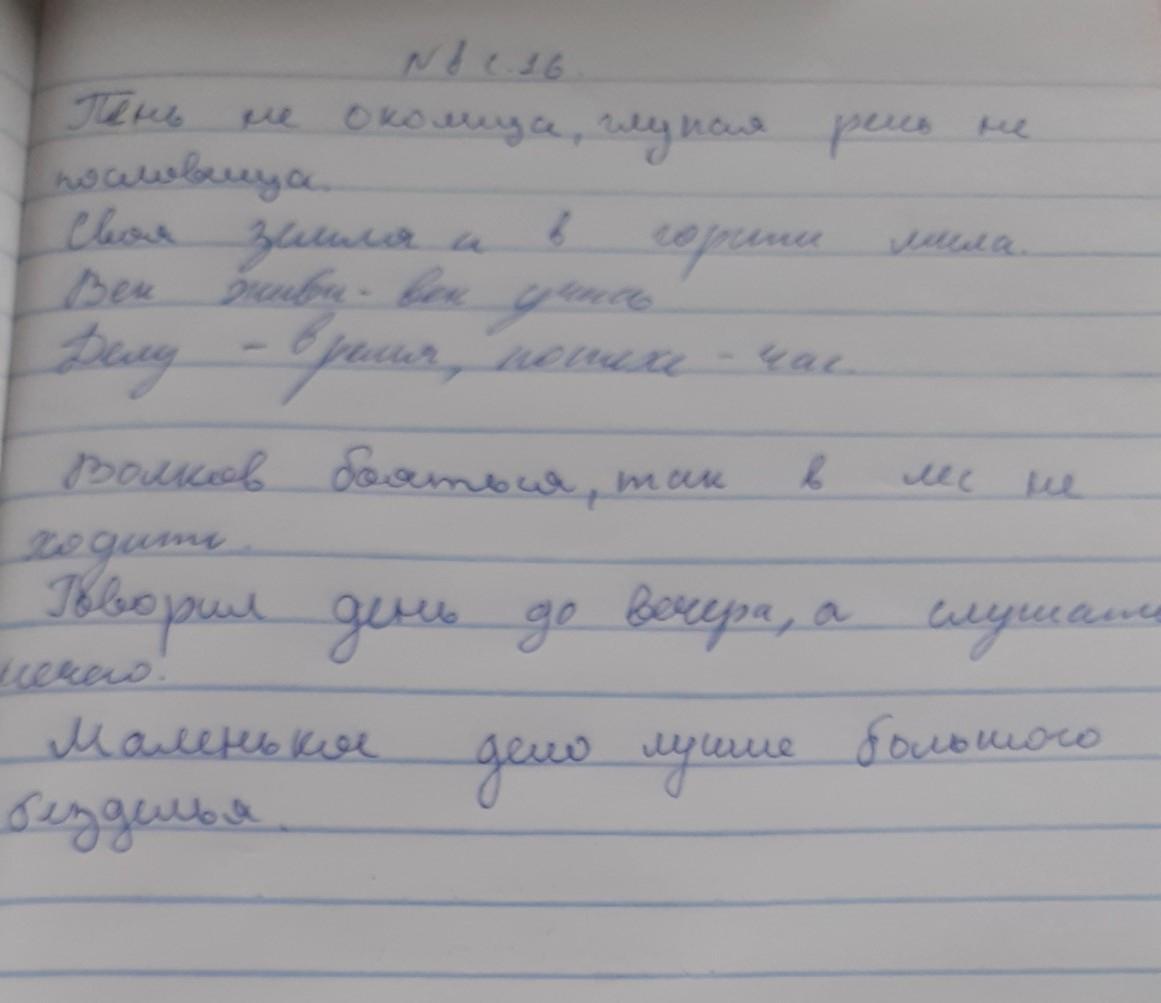 N 8 с. 16.
Пень не околица, глупая речь не
пословица.
Своя земля и в горсти мила.
Век живи - век учись
Делу - время, потехе - час.
Волков бояться, так в лес не
ходить.
Говорил день до вечера, а слушать
нечего.
Маленькое дело лучше большого
безделья.